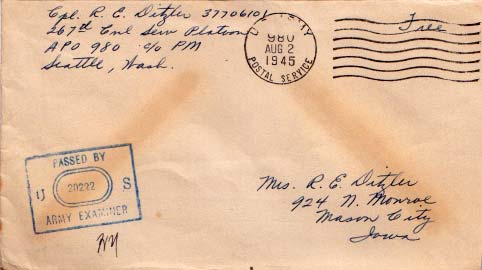 Cpl. R. E. Ditzler 37706101
267th Enl Serv Platoon
APO 980 c/o PM
Seattle, Wash.
980
AUG 2
1945
POSTAL SERVICE
Free
PASSED BY
U 20222 S
ARMY EXAMINER
Mrs. R. E. Ditzler
924 N. Monroe
Mason City
Iowa